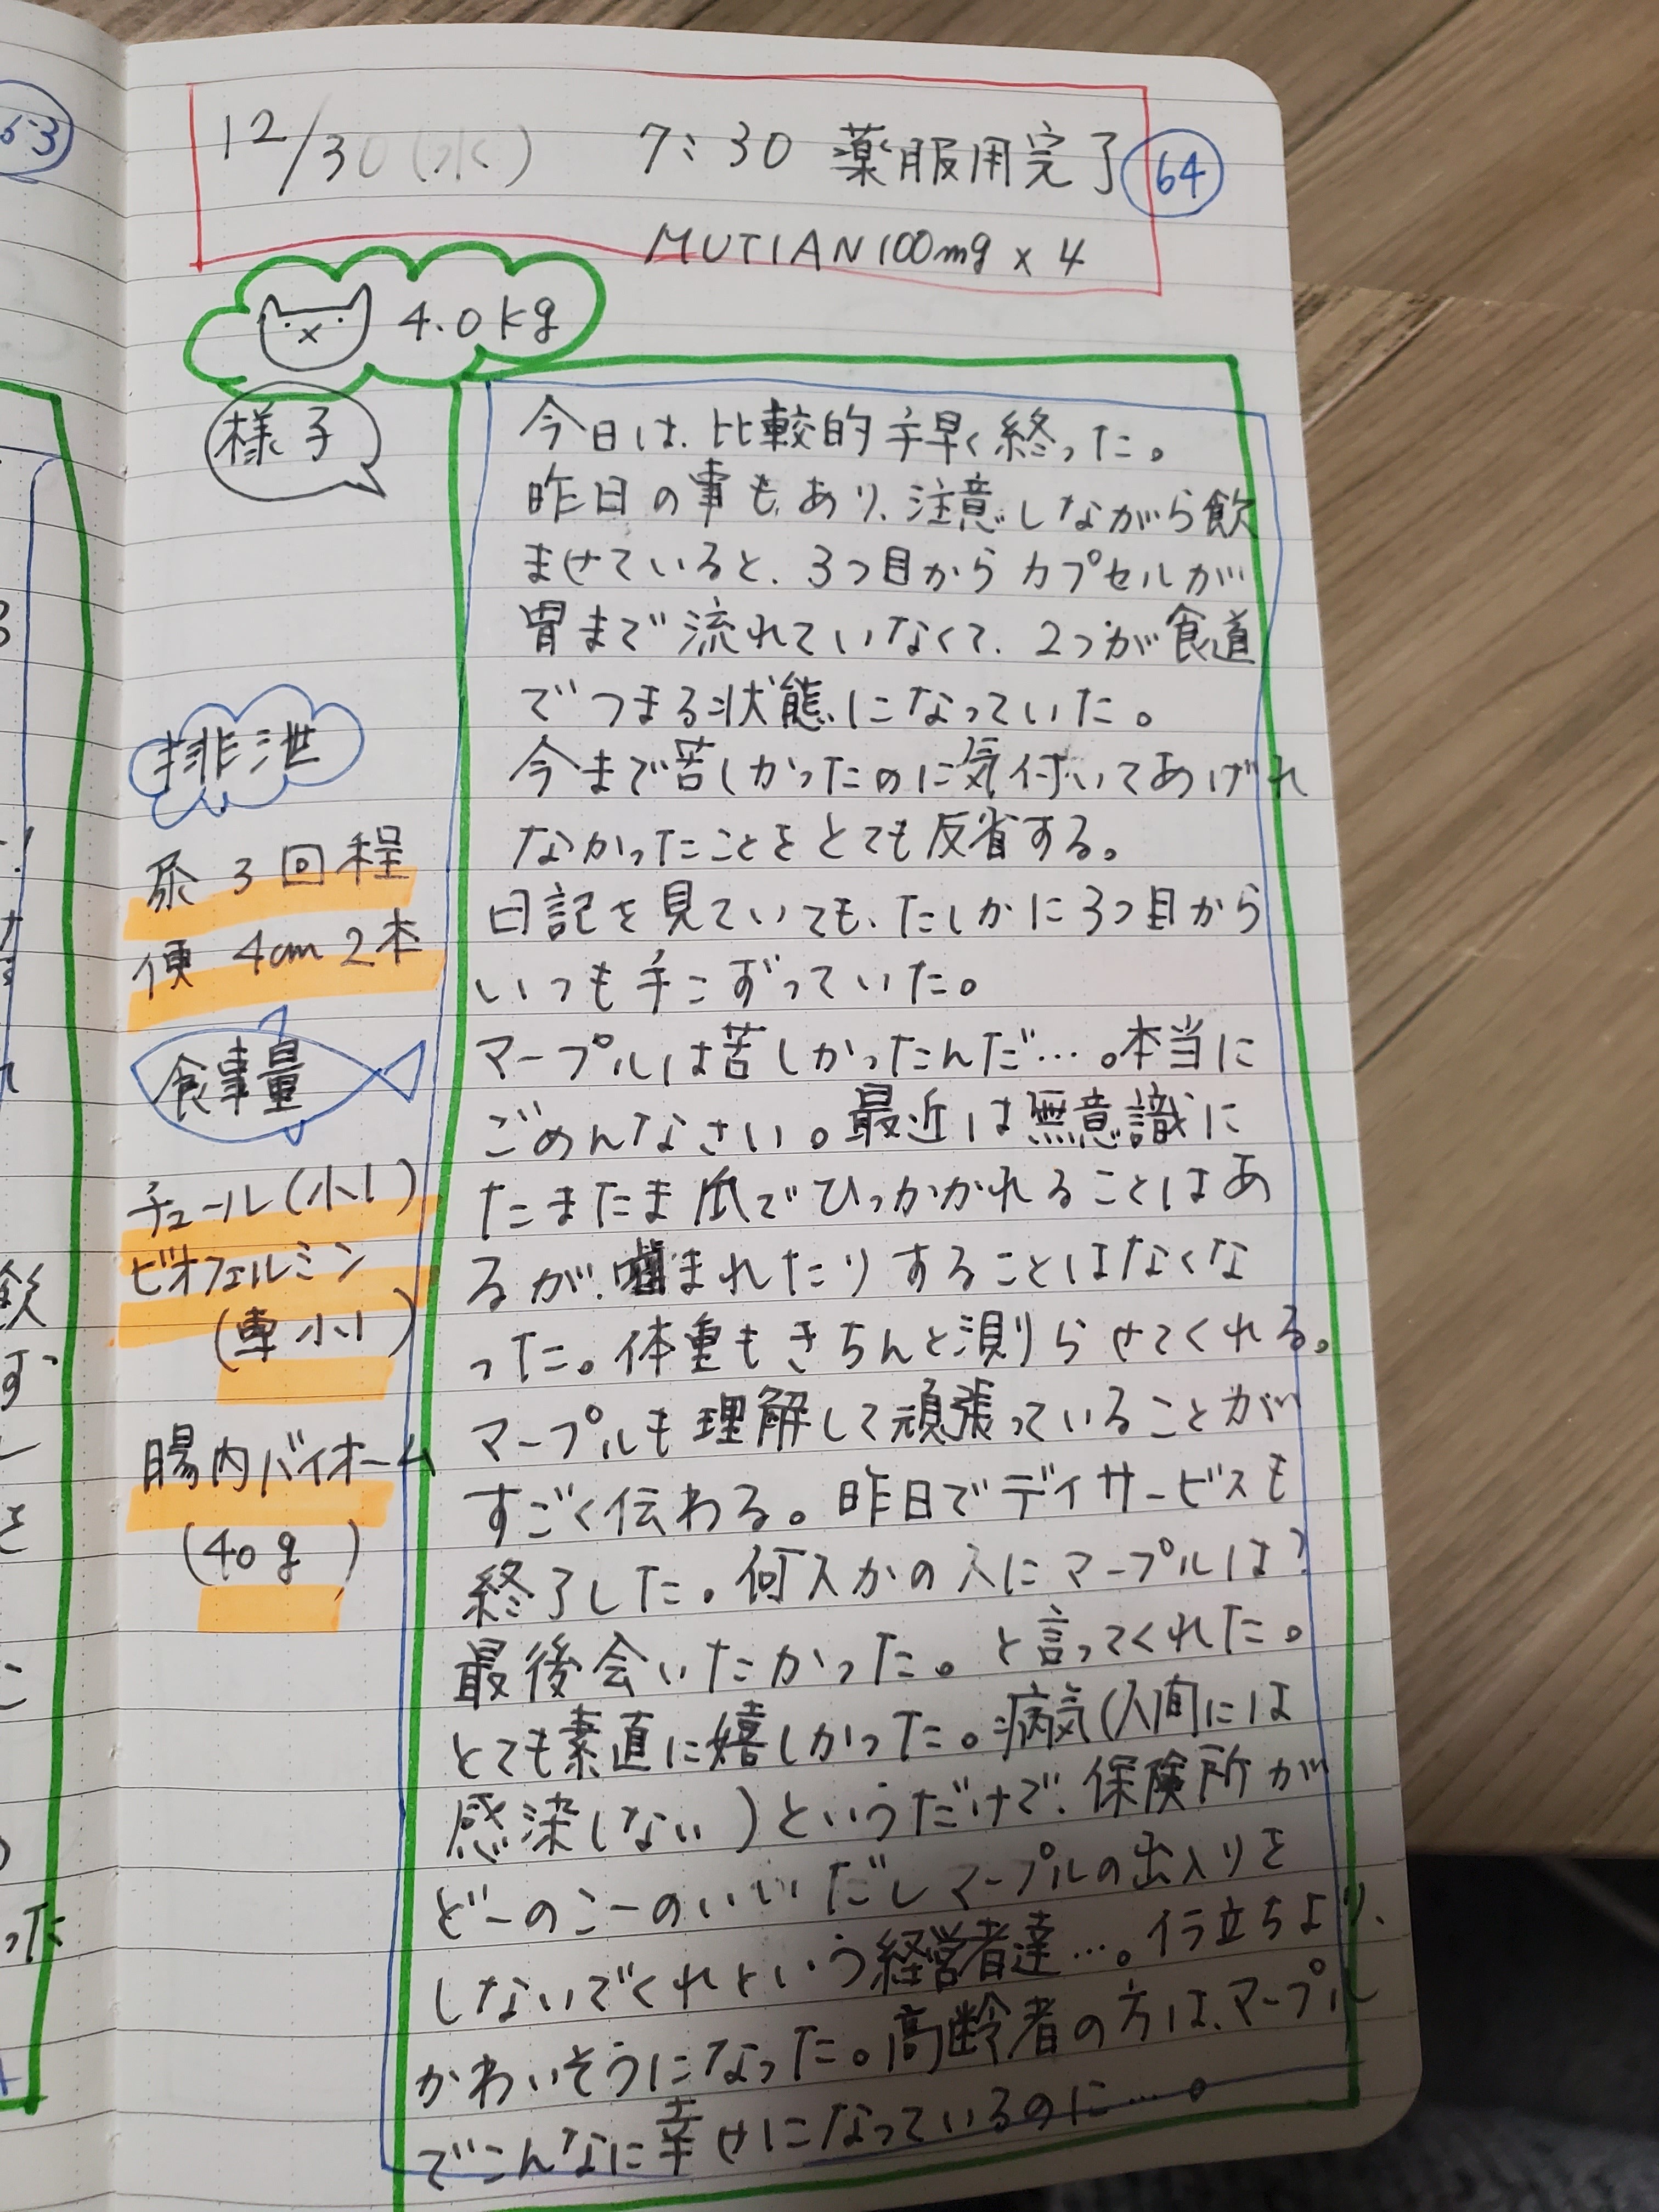 63
12/30(水) 7:30 薬服用完了 64
MUTIAN100mg×4
4.0kg
様子
今日は、比較的手早く終った。
昨日の事も、あり、注意しながら飲
ませていると、3つ目からカプセルが
胃まで流れていなくて、2つが食道
でつまる状態になっていた。
今まで苦しかったのに気付いてあげれ
なかったことをとても反省する。
日記を見ていても、たしかに3つ目から
いつも手こずっていた。
マープルは苦しかったんだ…。本当に
ごめんなさい。最近は無意識に
たまたま爪でひっかかれることはあ
るが、噛まれたりすることはなくな
った。体重もきちんと測りらせてくれる。
マープルも理解して頑張っていることが
すごく伝わる。昨日でデイサービスも
終了した。何人かの人にマープルは?
最後会いたかった。と言ってくれた。
とても素直に嬉しかった。病気(人間には
感染しない)というだけで、保険所が
どーのこーのいいだしマープルの出入りを
しないでくれという経営者達…。イラ立ちより、
かわいそうになった。高齢者の方は、マープル
でこんなに幸せになっているのに…。
排泄
尿 3回程
便 4cm 2本
食事量
チュール(小1)
ビオフェルミン
(専小1)
腸内バイオーム
(40g)